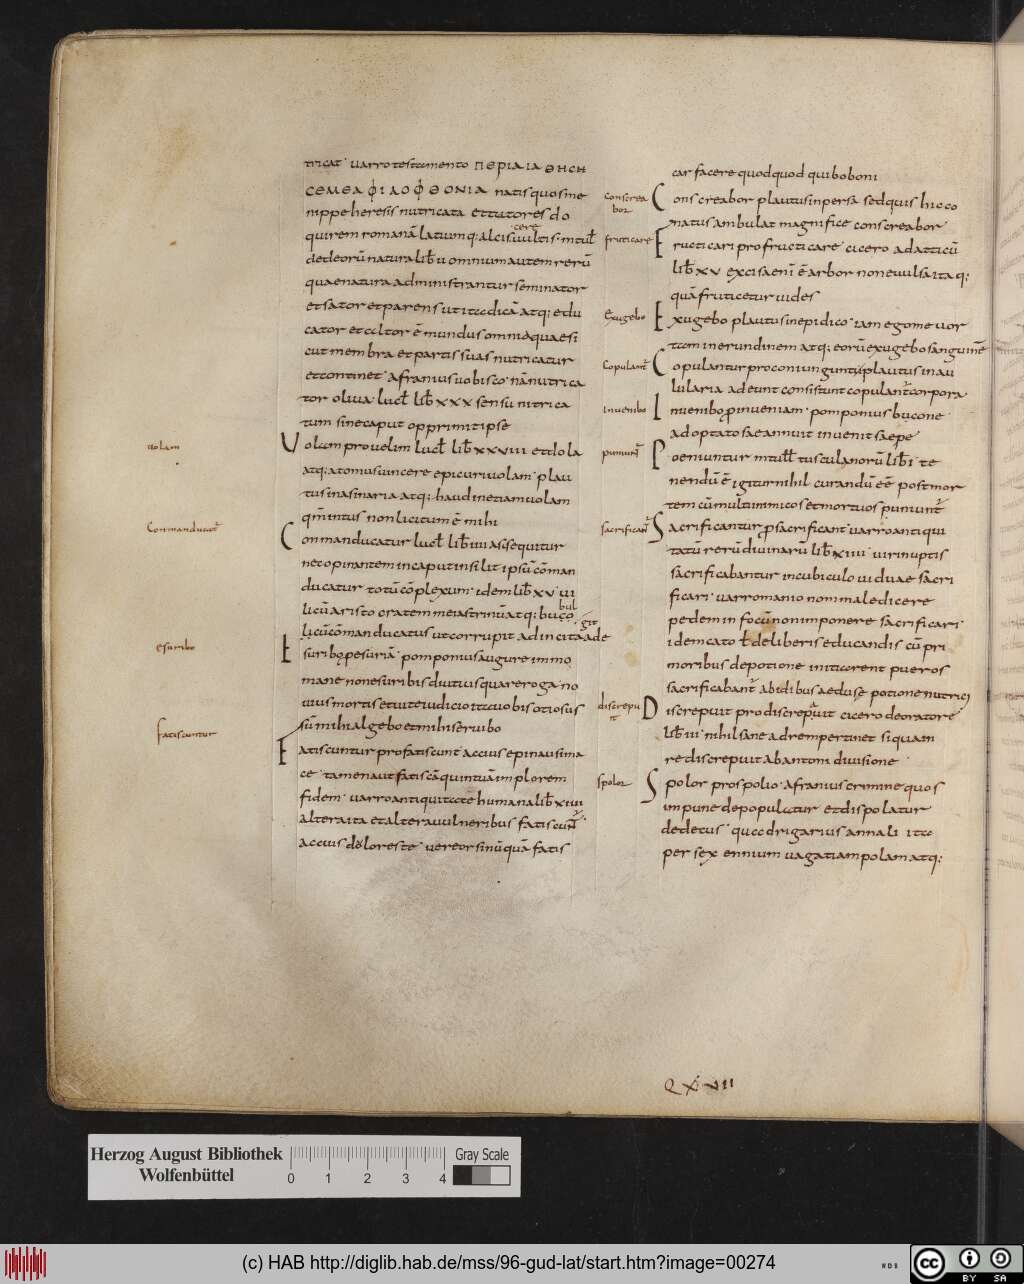 tricat uarro testamento ΠΕΡΙΑΙΑΘΗϹΗ
ϹΕΜΕΑΦΙΛΟΦΘΟΝΙΑ natis quos me
nippe heresis nutricata et tutores do
quirem romanā latiumq; alcisuultis mtuł
cere
dedeorū natura lib̄ ii omnium autem rerū
quae natura administrantur seminator
et sator et parens ut ita dicā atq; edu
cator et altor ē mundus omniaquae si
cut membra et partis suas nutricatur
et continet afranius uobisco nā nutrica
tor oliua lucł lib̄ xxx sensu nitrica
tum sine caput opprimit ipse
uolam
Uolam prouelim lucł lib̄ xxuiii et dola
atq; atomus uincere epicuriuolam plau
tus inasinaria atq; haud inetiam uolam
qm̄intus non licitum ē mihi
Commanducat̄
Conmanducatur lucł lib̄ iiii asisequitur
nec opinantem in caput insilit ipsū cōman
ducatur totū cōplexum idem lib̄ xv iii
licū aristo cratem meiastrinū atq; buco
bul
licū cōmanducatus ut corrupit adincita ade
git
esuribo
Esuribo pesuriā pomponius augure immo
mane non esuribis diutius quarerogano
uius mortis etuite iudicio ita uobis otiosus
sū mihi algebo et mihi seruibo
fatiscuntur
Fatiscuntur profatiscunt accius epinausima
ce tamenaut fatiscā quintuā implorem
fidem uarro antiquitate humana lib̄ xiiii
altera ita et altera uulneribus fatiscunt̄
accius doloreste uereor sinūquā fatis
car facere quodquod quiboboni
conscrea
bor
Conscreabor plautus in persa sed quis hic co
matus ambulat magnifice conscreabor
fruticare
Fructicari profructicare cicero ad atticū
lib̄ xv excisa enī ē arbor non euulsa itaq;
quā fruticetur uides
Exugebo
Exugebo plautus in epidico iam ego me uor
tam inerundinem atq; eorū exugebo sanguinē
copulant̄
Copulantur proconiungunt plautus inau
lularia adeunt consistunt copulant̄ corpora
inuenibo
Inuenibo proinueniam pomponius bucone
adoptato sae annuit inuenit saepe
puniunt̄
Poeniuntur mtułł tusculanorū lib̄ i te
nendū ē igitur nihil curandū eē post mor
tem cū multi inimicos et mortuos puniunt̄
sacrificant̄
Sacrificantur prosacrificant uarro antiqui
tatū rerū diuinarū lib̄ xiiii uirinuptis
sacrificabantur incubiculo uiduae sacri
ficari uarro manio non maledicere
pedem in focū non imponere sacrificari
idem cato ł de liberis educandis cū pri
moribus depotione initiarent pueros
sacrificabant̄ abidibus aeduse potione nutrici
discrepui
t
Discrepuit pro discrepauit cicero de oratore
lib̄ iii nihil sane ad rem pertinet si quam
re discrepuit ab antoni diuisione
spolor
Spolor prospolio afranius crimine quos
impune depopulatur et dispolatur
dedecus quadrigarius annali ita
per sex ennium uagatiam polam atq;
Q XVII
Herzog August Bibliothek
Wolfenbüttel
0 1 2 3 4
Gray Scale
(c) HAB http://diglib.hab.de/mss/96-gud-lat/start.htm?image=00274
WDB
cc BY SA